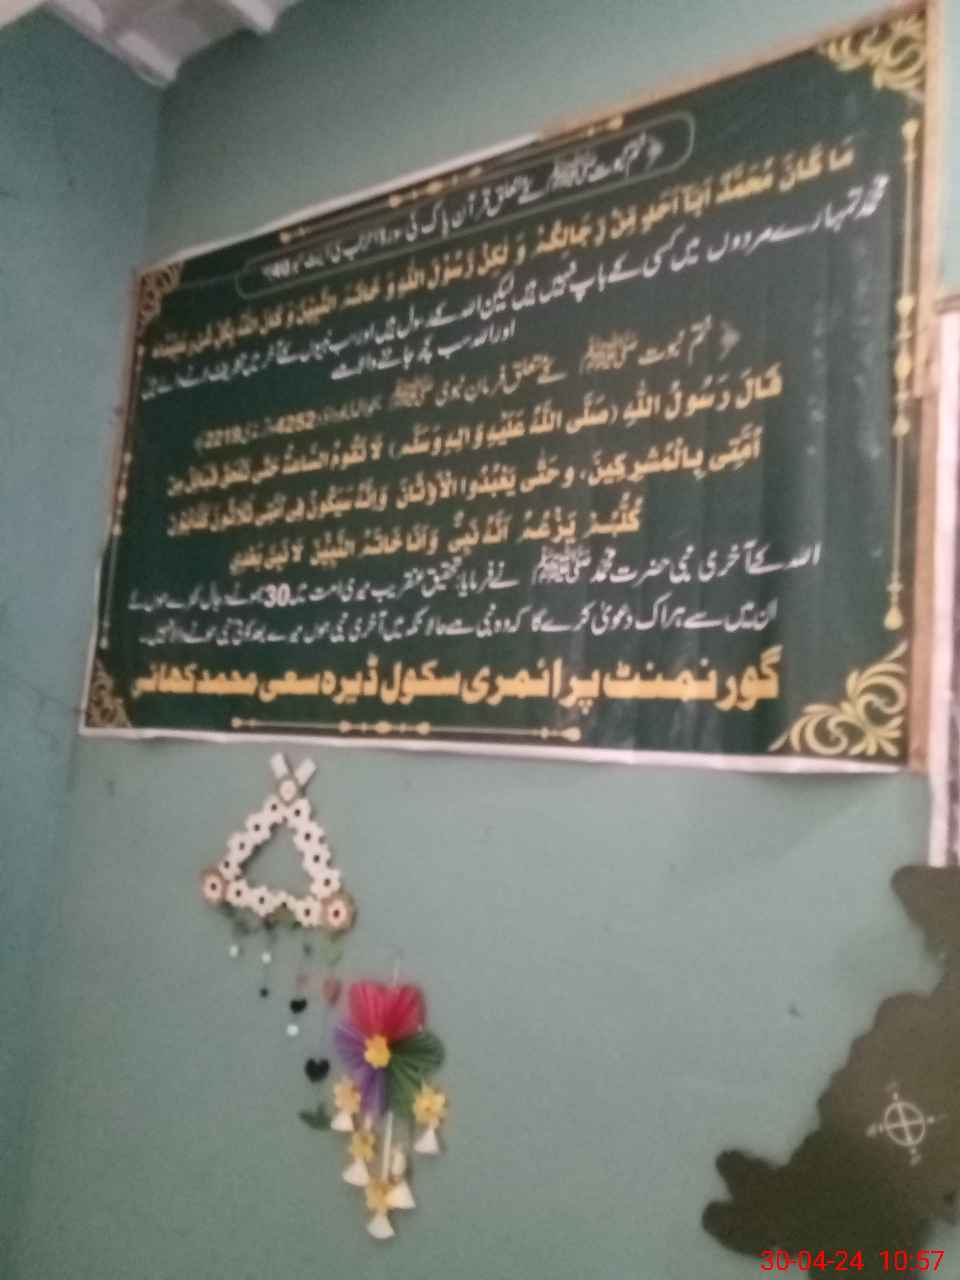 ﴿ختم نبوت ﷺ کے متعلق قرآن پاک کی سورۃ احزاب کی آیت نمبر 40﴾
مَا كَانَ مُحَمَّدٌ اَبَاۤ اَحَدٍ مِّنْ رِّجَالِكُمْ وَ لٰكِنْ رَّسُوْلَ اللّٰهِ وَ خَاتَمَ النَّبِیّٖنَ وَ كَانَ اللّٰهُ بِكُلِّ شَیْءٍ عَلِیْمًا
محمد تمہارے مردوں میں کسی کے باپ نہیں ہیں لیکن اللہ کے رسول ہیں اور سب نبیوں کے آخر میں تشریف لانے والے ہیں
اور اللہ سب کچھ جاننے والا ہے
﴿ختم نبوت ﷺ کے متعلق فرمان نبوی ﷺ 4252 2219﴾
قَالَ رَسُولُ اللّٰهِ (صَلَّى اللّٰهُ عَلَيْهِ وَاٰلِهٖ وَسَلَّمَ) لَا تَقُومُ السَّاعَةُ حَتّٰى تَلْحَقَ قَبَائِلُ مِنْ
اُمَّتِي بِالْمُشْرِكِينَ، وَحَتّٰى يَعْبُدُوا الْاَوْثَانَ وَاِنَّهُ سَيَكُونُ فِي اُمَّتِي ثَلَاثُونَ كَذَّابُونَ
كُلُّهُمْ يَزْعُمُ اَنَّهُ نَبِيٌّ وَاَنَا خَاتَمُ النَّبِيِّينَ لَا نَبِيَّ بَعْدِي
اللہ کے آخری نبی حضرت محمد ﷺ نے فرمایا: تحقیق عنقریب میری امت میں 30 جھوٹے دجال کھڑے ہوں گے
ان میں سے ہر اک دعویٰ کرے گا کہ وہ نبی ہے حالانکہ میں آخری نبی ہوں میرے بعد کوئی نبی ہونے والا نہیں۔
گورنمنٹ پرائمری سکول ڈیرہ سعی محمد کھائی
30-04-24 10:57